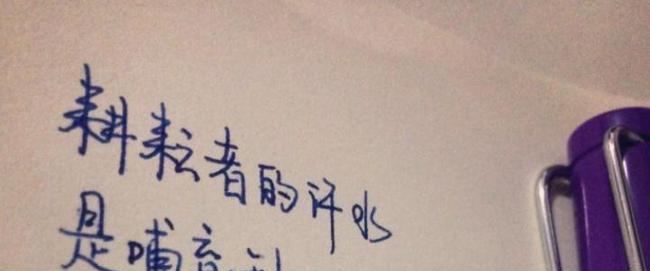 耕耘者的汗水
是哺育